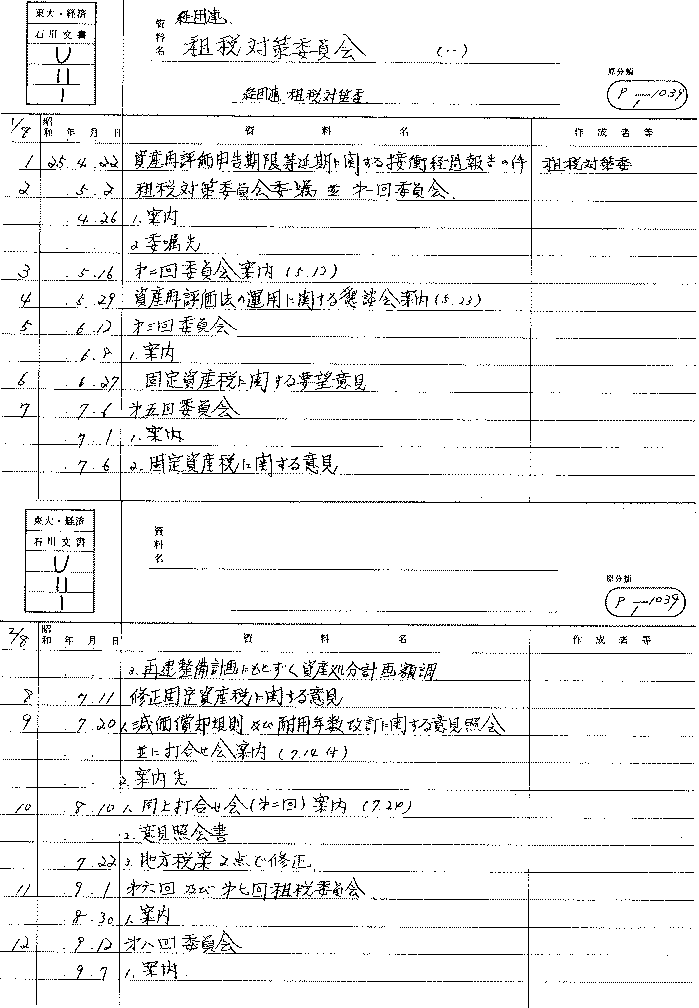 東大・経済
石川文書
U
11
1
資料名
経団連
租税対策委員会 (一)
経団連 租税対策委
原分類
P-1-1039
1/8
昭和 年 月 日 資料名 作成者等
1 25.4.22 資産再評価申告期限等延期に関する接衝経過報告の件 租税対策委
2 5.2 租税対策委員会委嘱並第一回委員会
4.26 1.案内
2.委嘱先
3 5.16 第二回委員会案内(5.12)
4 5.29 資産再評価法の運用に関する懇談会案内(5.23)
5 6.12 第三回委員会
6.8 1.案内
6 6.27 固定資産税に関する要望意見
7 7.6 第五回委員会
7.1 1.案内
7.6 2.固定資産税に関する意見
東大・経済
石川文書
U
11
1
資料名
原分類
P-1-1039
2/8
昭和 年 月 日 資料名 作成者等
3.再建整備計画にもとずく資産処分計画額調
8 7.11 修正固定資産税に関する意見
9 7.20 1.減価償却規則及び耐用年数改訂に関する意見照会
並に打合せ会案内(7.14付)
2.案内先
10 8.10 1.同上打合せ会(第二回)案内(7.24)
2.意見照会書
7.22 3.地方税案2点で修正
11 9.1 第六回及び第七回租税委員会
8.30 1.案内
12 9.12 第八回委員会
9.7 1.案内